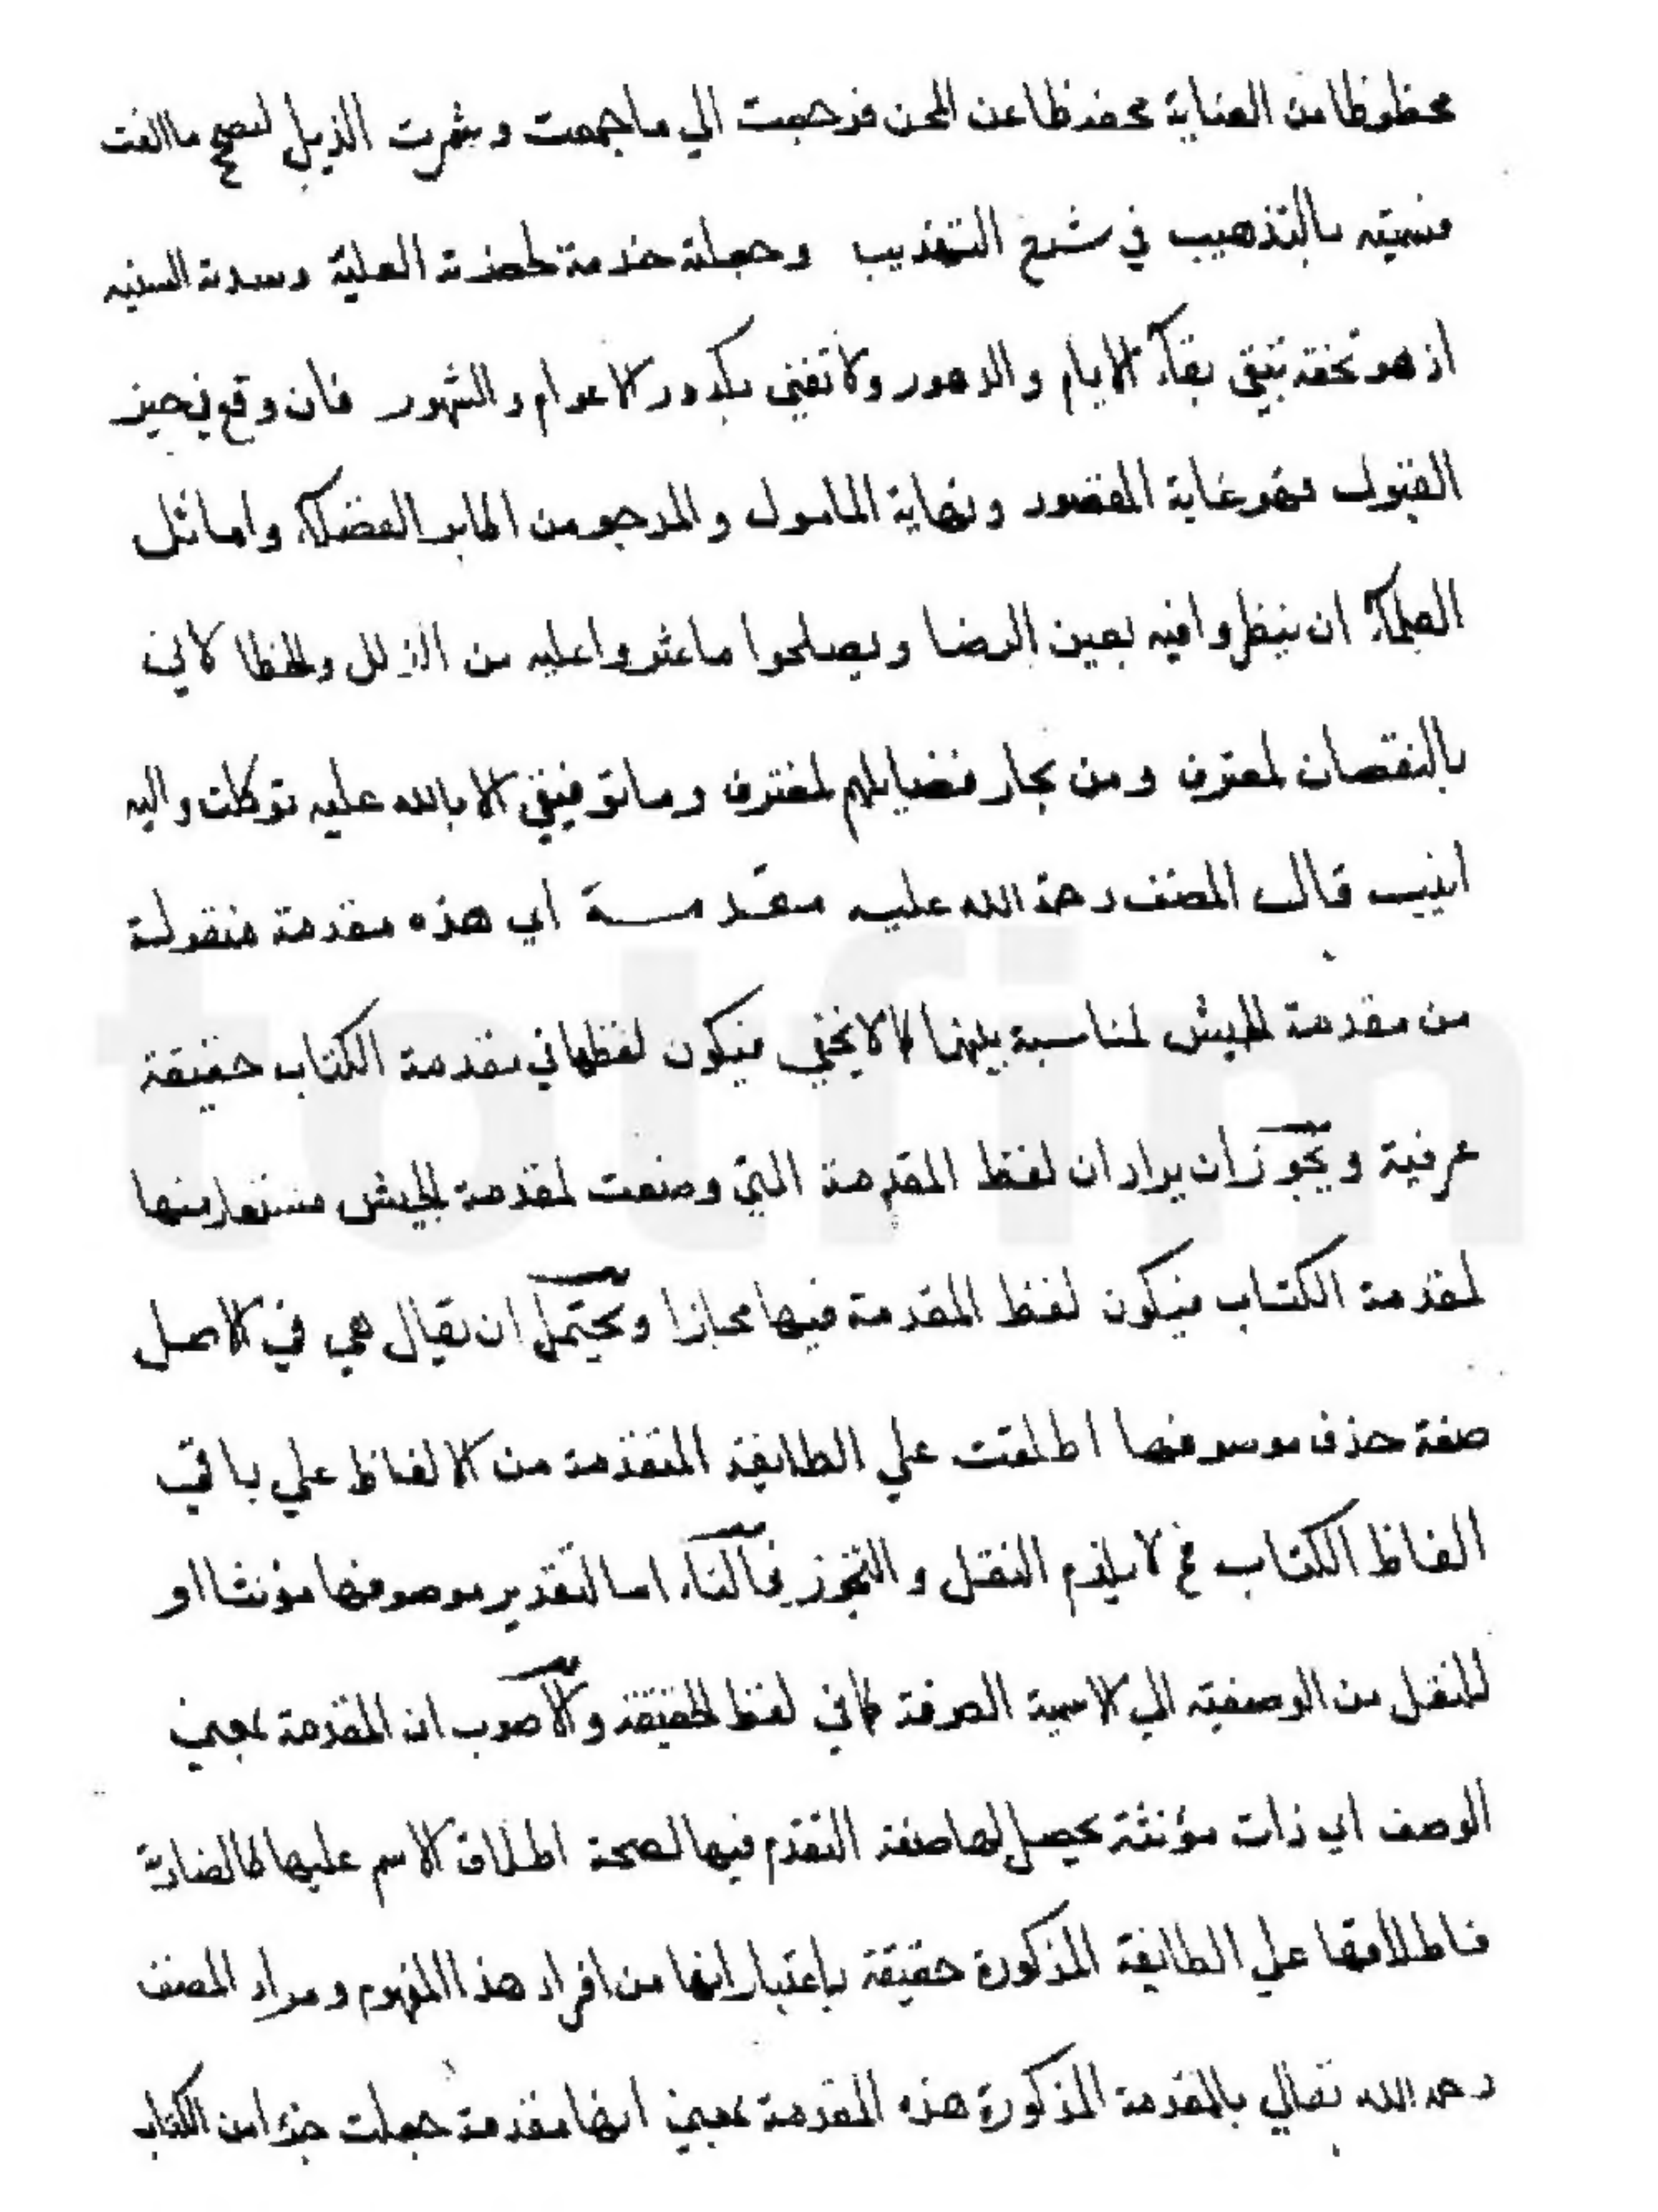 محظوظا من العناية محفوظا عن المحن فرجعت الي ما جمعت وشمرت الذيل لتصحيح ما الفت
فسميته بالتذهيب في شرح التهذيب وجعلته خدمة لحضرته العلية وسدته السنيه
اذ هو تحفة تبقي بقاء الايام والدهور ولا تفني بكدور الاعوام والشهور فان وقع في حيز
القبول فهو غاية المقصود ونهاية المامول والمرجو من اكابر الفضلاء واماثل
العلماء ان ينظروا فيه بعين الرضا ويصلحوا ما عثروا عليه من الزلل والخطا لاني
بالنقصان لمعترف ومن بحار فضايلهم لمغترف وما توفيقي الا بالله عليه توكلت واليه
انيب قال المصنف رحمة الله عليه مقدمة اي هذه مقدمة منقولة
من مقدمة الجيش لمناسبة بينهما كما لا يخفي فيكون لفظها في مقدمة الكتاب حقيقة
عرفية ويجوز ان يراد ان لفظ المقدمة التي وضعت لمقدمة الجيش مستعار منها
لمقدمة الكتاب فيكون لفظ المقدمة فيها مجازا ويحتمل ان يقال هي في الاصل
صفة حذف موسوفها اطلقت علي الطايفة المتقدمة من الالفاظ علي باقي
الفاظ الكتاب فح لا يلزم النقل والتجوز فالتاء اما لتقدير موصوفها مؤنثا او
للنقل من الوصفية الي الاسمية الصرفة كما في لفظ الحقيقة والاصوب ان المقدمة بمعني
الوصف اي ذات مؤنثة يحصل لها صفة التقدم فيها لصحة اطلاق الاسم عليها كالضاربة
فاطلاقها علي الطايفة المذكورة حقيقة باعتبار انها من افراد هذا المفهوم ومراد المصنف
رحمه الله تعالي بالمقدمة المذكورة هذه المقدمة بمعني انها مقدمة جعلت جزء امن الكتاب